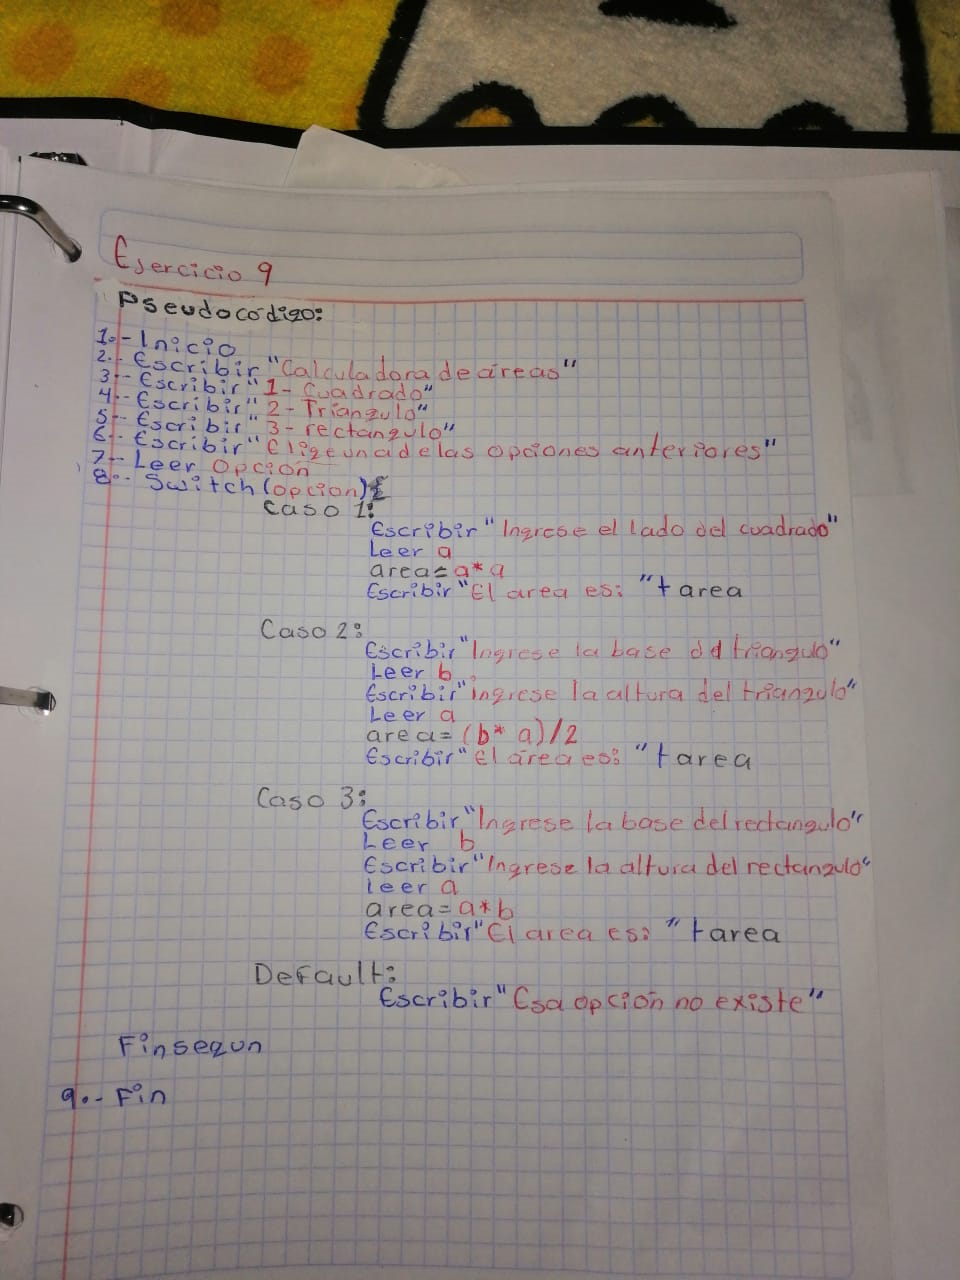 Ejercicio 9
Pseudocódigo:
1.- Inicio
2.- Escribir "Calculadora de áreas"
3.- Escribir "1- Cuadrado"
4.- Escribir "2- Triangulo"
5.- Escribir "3- rectangulo"
6.- Escribir "Elige una de las opciones anteriores"
7.- Leer Opcion
8.- Switch (opcion){
Caso 1:
Escribir "Ingrese el lado del cuadrado"
Leer a
area= a*a
Escribir "El area es: "+ area
Caso 2:
Escribir "Ingrese la base del triangulo"
Leer b
Escribir "ingrese la altura del triangulo"
Leer a
area= (b* a)/2
Escribir "El área es: "+ area
Caso 3:
Escribir "Ingrese la base del rectangulo"
Leer b
Escribir "Ingrese la altura del rectangulo"
leer a
area= a*b
Escribir "El area es: "+ area
Default:
Escribir "Esa opción no existe"
Finsegun
9.- Fin